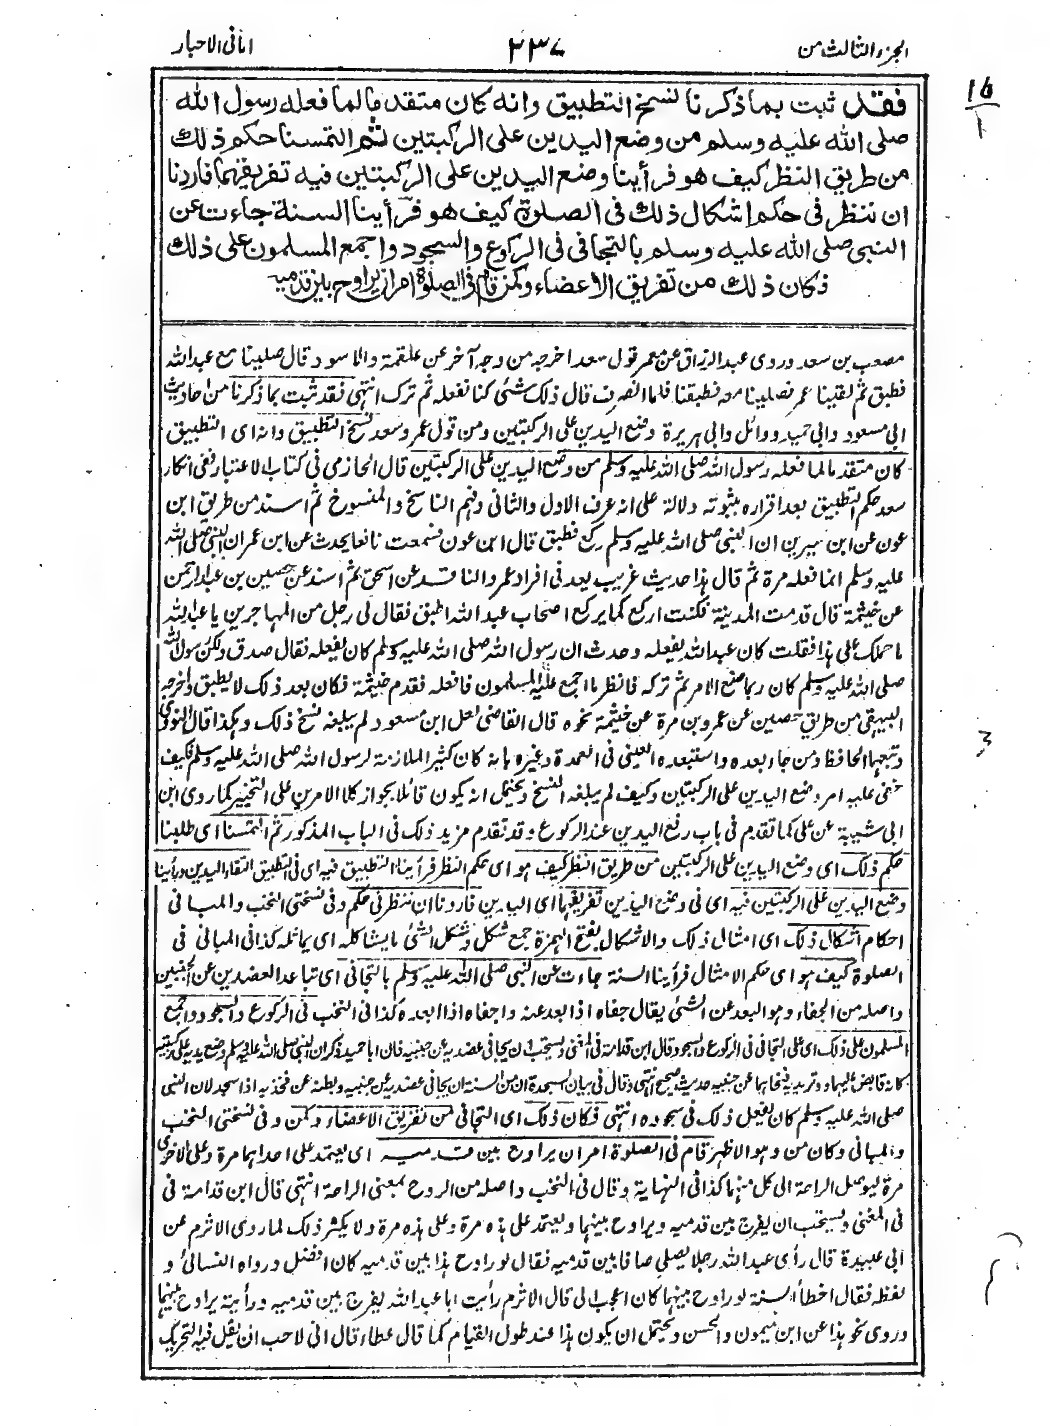 الجزء الثالث من
٢٣٧
امانی الاحبار
فقد ثبت بما ذكرنا نسخ التطبيق وانه كان متقد ما لما فعله رسول الله
صلى الله عليه وسلم من وضع اليدين على الركبتين ثم التمسنا حكم ذلك
من طريق النظر كيف هو فرأينا وضع اليدين على الركبتين فيه تفريقهما فاردنا
ان ننظر فى حكم اشكال ذلك فى الصلوة كيف هو فرأينا السنة جاءت عن
النبى صلى الله عليه وسلم بالتجافى فى الركوع والسجود واجمع المسلمون على ذلك
فكان ذلك من تفريق الاعضاء وكمن قام فى الصلوة امر ان يراوح بين قدميه
مصعب بن سعد وروى عبد الرزاق عن معمر قول سعد اخرجه من وجه آخر عن علقمة والاسود قال صلينا مع عبد الله
فطبق ثم لقينا عمر فصلينا معه فطبقنا فلما انصرف قال ذلك شئ كنا نفعله ثم ترك انتهى فقد ثبت بما ذكرنا من احاديث
ابى مسعود وابى حميد ووائل وابى هريرة وضع اليدين على الركبتين ومن قول عمر وسعد نسخ التطبيق وانه اى التطبيق
كان متقدما لما فعله رسول الله صلى الله عليه وسلم من وضع اليدين على الركبتين قال الحازمى فى كتاب الاعتبار ففى انكار
سعد حكم التطبيق بعد اقراره بثبوته دلالة على انه عرف الاول والثانى وفهم الناسخ والمنسوخ ثم اسند من طريق ابن
عون عن ابن سيرين ان النبى صلى الله عليه وسلم ركع فطبق قال ابن عون فسمعت نافعا يحدث عن ابن عمر ان النبى صلى الله
عليه وسلم انما فعله مرة ثم قال هذا حديث غريب يعد فى افراد عمرو الناقد عن اسحق ثم اسند عن حصين بن عبد الرحمن
عن خيثمة قال قدمت المدينة فكنت اركع كما يركع اصحاب عبد الله اطبق فقال لى رجل من المهاجرين يا عبد الله
ما حملك على هذا فقلت كان عبد الله يفعله وحدث ان رسول الله صلى الله عليه وسلم كان يفعله فقال صدق ولكن رسول الله
صلى الله عليه وسلم كان ربما صنع الامر ثم تركه فانظر ما اجمع عليه المسلمون فافعله فقدم خيثمة فكان بعد ذلك لا يطبق واخرجه
البيهقى من طريق حصين عن عمرو بن مرة عن خيثمة نحوه قال القاضى لعل ابن مسعود لم يبلغه نسخ ذلك وهكذا قال النووى
وتبعهما الحافظ ومن جاء بعده واستبعده العينى فى العمدة وغيره بانه كان كثير الملازمة لرسول الله صلى الله عليه وسلم فكيف
خفى عليه امر وضع اليدين على الركبتين وكيف لم يبلغه النسخ ويحتمل انه يكون قائلا بجواز كلا الامرين على التخيير كما روى ابن
ابى شيبة عن على كما تقدم فى باب رفع اليدين عند الركوع وقد تقدم مزيد ذلك فى الباب المذكور ثم التمسنا اى طلبنا
حكم ذلك اى وضع اليدين على الركبتين من طريق النظر كيف هو اى حكم النظر فرأينا التطبيق فيه اى فى التطبيق التقاء اليدين ورأينا
وضع اليدين على الركبتين فيه اى فى وضع اليدين تفريقهما اى اليدين فاردنا ان ننظر فى حكم وفى نسختى النخب والمبانى
احكام اشكال ذلك اى امثال ذلك والاشكال بفتح الهمزة جمع شكل وشكل الشئ ما يشاكله اى يماثله كذا فى المبانى فى
الصلوة كيف هو اى حكم الامثال فرأينا السنة جاءت عن النبى صلى الله عليه وسلم بالتجافى اى تباعد العضدين عن الجنبين
واصله من الجفاء وهو البعد عن الشئ يقال جفاه اذا بعد عنه واجفاه اذا ابعده كذا فى النخب فى الركوع والسجود واجمع
المسلمون على ذلك اى على التجافى فى الركوع والسجود وقال ابن قدامة فى المغنى ويستحب ان يجافى عضديه عن جنبيه فان ابا حميد ذكر ان النبى صلى الله عليه وسلم وضع يديه على ركبتيه
كانه قابض عليهما ووتر يديه فنحاهما عن جنبيه حديث صحيح انتهى وقال فى بيان السجدة ان من السنة ان يجافى عضديه عن جنبيه وبطنه عن فخذيه اذا سجد لان النبى
صلى الله عليه وسلم كان يفعل ذلك فى سجوده انتهى فكان ذلك اى التجافى من تفريق الاعضاء وكمن وفى نسختى النخب
والمبانى وكان من وهو الاظهر قام فى الصلوة امر ان يراوح بين قدميه اى يعتمد على احداهما مرة وعلى الاخرى
مرة ليوصل الراحة الى كل منهما كذا فى النهاية وقال فى النخب واصله من الروح بمعنى الراحة انتهى قال ابن قدامة فى
فى المغنى ويستحب ان يفرج بين قدميه ويراوح بينهما ويعتمد على هذه مرة وعلى هذه مرة ولا يكثر ذلك لما روى الاثرم عن
ابى عبيدة قال رأى عبد الله رجلا يصلى صافا بين قدميه فقال لو راوح هذا بين قدميه كان افضل ورواه النسائى و
لفظه فقال اخطأ السنة لو راوح بينهما كان اعجب الى قال الاثرم رأيت ابا عبد الله يفرج بين قدميه ورأيته يراوح بينهما
وروى نحو هذا عن ابن ميمون والحسن ويحتمل ان يكون هذا عند طول القيام كما قال عطاء قال انى لاحب ان يقل فيه التحريك